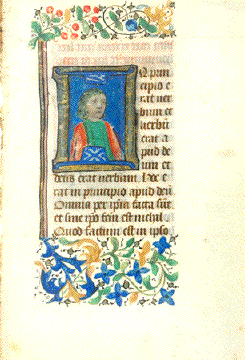 N prin
cipio e
rat uer
bum et
uerbū
erat a
pud de
um et
deus erat uerbum. Hoc e
rat in principio apud deū
Omnia per ipm facta sūt
et sine ipo fcm est nichil
Quod factum est in ipso